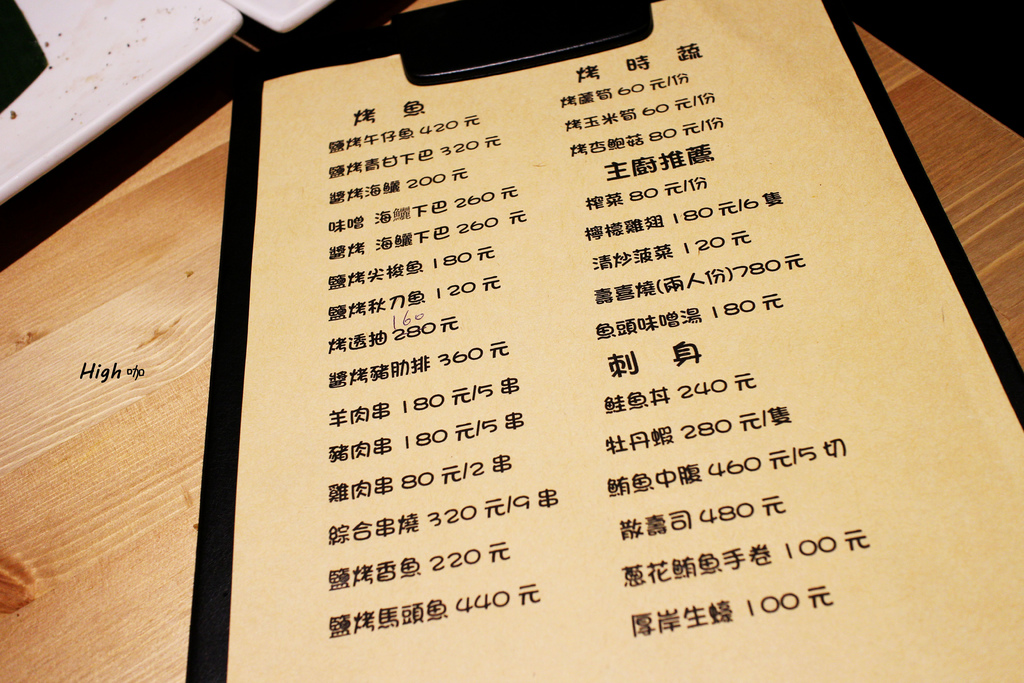 烤 魚
鹽烤午仔魚 420 元
鹽烤青甘下巴 320 元
醬烤海鱺 200 元
味噌 海鱺下巴 260 元
醬烤 海鱺下巴 260 元
鹽烤尖梭魚 180 元
鹽烤秋刀魚 120 元
160
烤透抽 280 元
醬烤豬肋排 360 元
羊肉串 180 元/5 串
豬肉串 180 元/5 串
雞肉串 80 元/2 串
綜合串燒 320 元/9 串
鹽烤香魚 220 元
鹽烤馬頭魚 440 元
烤 時 蔬
烤蘆筍 60 元/份
烤玉米筍 60 元/份
烤杏鮑菇 80 元/份
主廚推薦
榨菜 80 元/份
檸檬雞翅 180 元/6 隻
清炒菠菜 120 元
壽喜燒(兩人份)780 元
魚頭味噌湯 180 元
刺 身
鮭魚丼 240 元
牡丹蝦 280 元/隻
鮪魚中腹 460 元/5 切
散壽司 480 元
蔥花鮪魚手卷 100 元
厚岸生蠔 100 元
High 咖